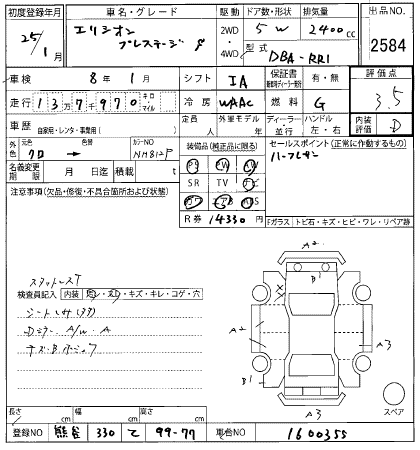 初度登録年月 車名・グレード 駆動 ドア数・形状 排気量 出品NO.
25年/1月 エリシオン プレステージ 2WD 4WD 5W 2400cc 2584
型式 DBA-RR1
車検 8年1月 シフト IA 保証書 有・無 評価点 3.5
走行 137970 キロ・マイル 冷房 WAAC 燃料 G
車歴 自家用・レンタ・事業用( ) 定員 人 外車モデル 年 ディーラー・並行 ハンドル 左・右 内装評価 D
外色 元色 クロ 色替 カラーNO NH812P 装備品(純正品に限る) セールスポイント(正常に作動するもの)
PS PW AW
名義変更期限 月 日迄 積載 t SR TV ナビ
注意事項(欠品・修復・不具合箇所および状態) カワ エアB ABS
R券 14330円
Fガラス トビ石・キズ・ヒビ・ワレ・リペア跡
スタットレスT
検査員記入 内装 キズ・キレ・コゲ・穴
A2
B1
A2
A3
B1
A3
スペア
長さ cm 幅 cm 高さ cm
登録NO 熊谷 330 て 99-77 車台NO 1600355